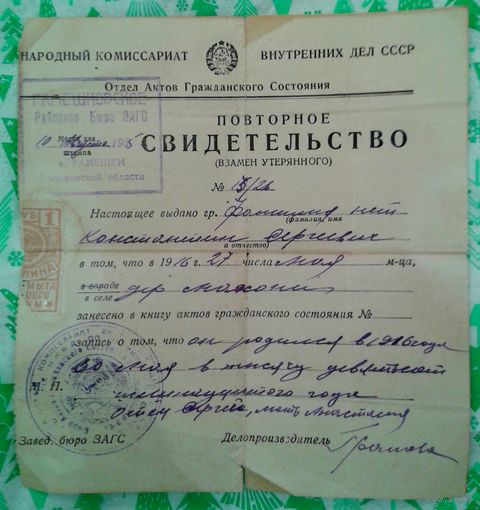 НАРОДНЫЙ КОМИССАРИАТ ВНУТРЕННИХ ДЕЛ СССР
Отдел Актов Гражданского Состояния
РАМЕШКОВСКОЕ
Районное Бюро ЗАГС
Место для штампа
10 августа 193
с. РАМЕШКИ
Калининской области
ПОВТОРНОЕ
СВИДЕТЕЛЬСТВО
(ВЗАМЕН УТЕРЯННОГО)
№
Настоящее выдано гр. Фамилии нет
(фамилия, имя
Константин Сергеевич
и отчество)
в том, что в 1916 г. 27 числа мая м-ца,
в городе
в селе дер
занесено в книгу актов гражданского состояния №
запись о том, что он родился в 1916 года
мая в тысячу девятьсот
шестнадцатого года
Отец Сергей, мать Анастасия
М. П.
Завед. бюро ЗАГС Делопроизводитель
1